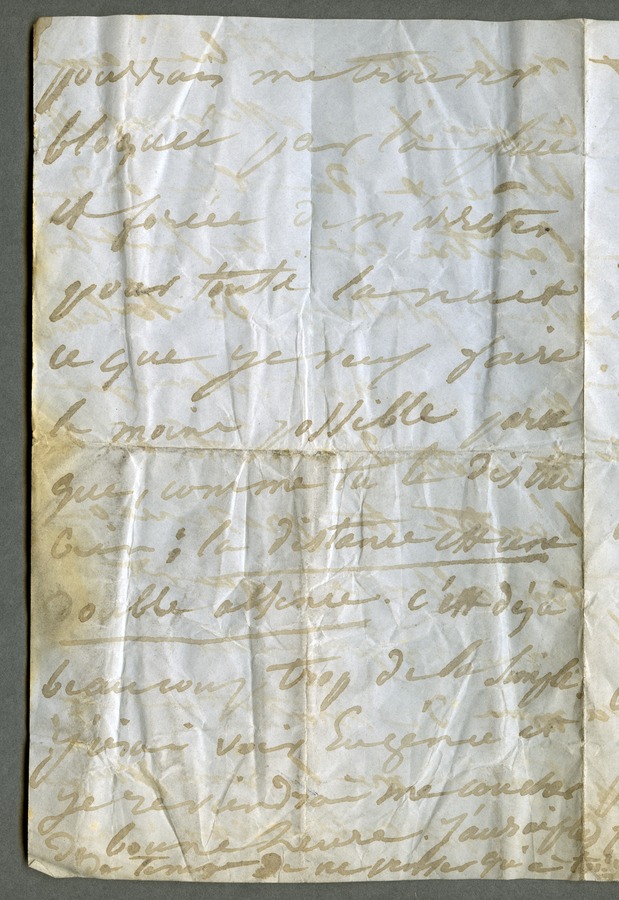 pourrais me trouver
bloquée par la pluie
et forcée de m'arrêter
pour toute la nuit
ce que je veux faire
le moins possible parce
que, comme tu le dis très
bien ; la distance est une
double absence. c'est déjà
beaucoup trop de la simple.
J'irai voir Eugénie et
je reviendrai me coucher
de bonne heure. J'aurai
de temps de ne penser qu'à toi